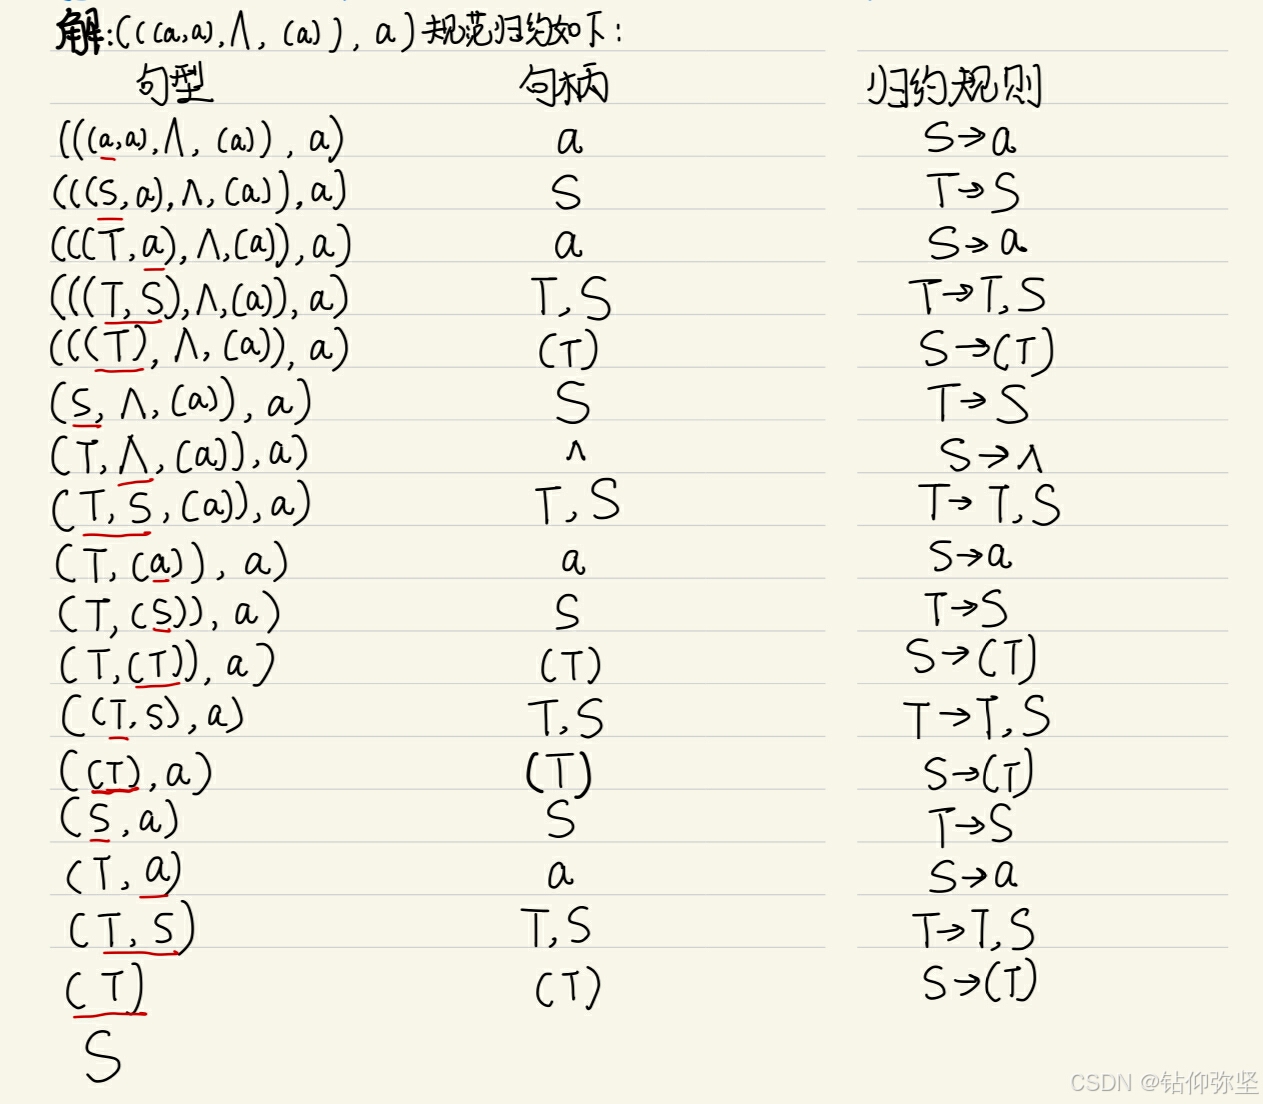 解:(((a,a),Λ,(a)),a)规范归约如下:
句型 句柄 归约规则
(((a,a),Λ,(a)),a) a S→a
(((S,a),Λ,(a)),a) S T→S
(((T,a),Λ,(a)),a) a S→a
(((T,S),Λ,(a)),a) T,S T→T,S
(((T),Λ,(a)),a) (T) S→(T)
(S,Λ,(a)),a) S T→S
(T,Λ,(a)),a) Λ S→Λ
(T,S,(a)),a) T,S T→T,S
(T,(a)),a) a S→a
(T,(S)),a) S T→S
(T,(T)),a) (T) S→(T)
((T,S),a) T,S T→T,S
((T),a) (T) S→(T)
(S,a) S T→S
(T,a) a S→a
(T,S) T,S T→T,S
(T) (T) S→(T)
S
CSDN @钻仰弥坚